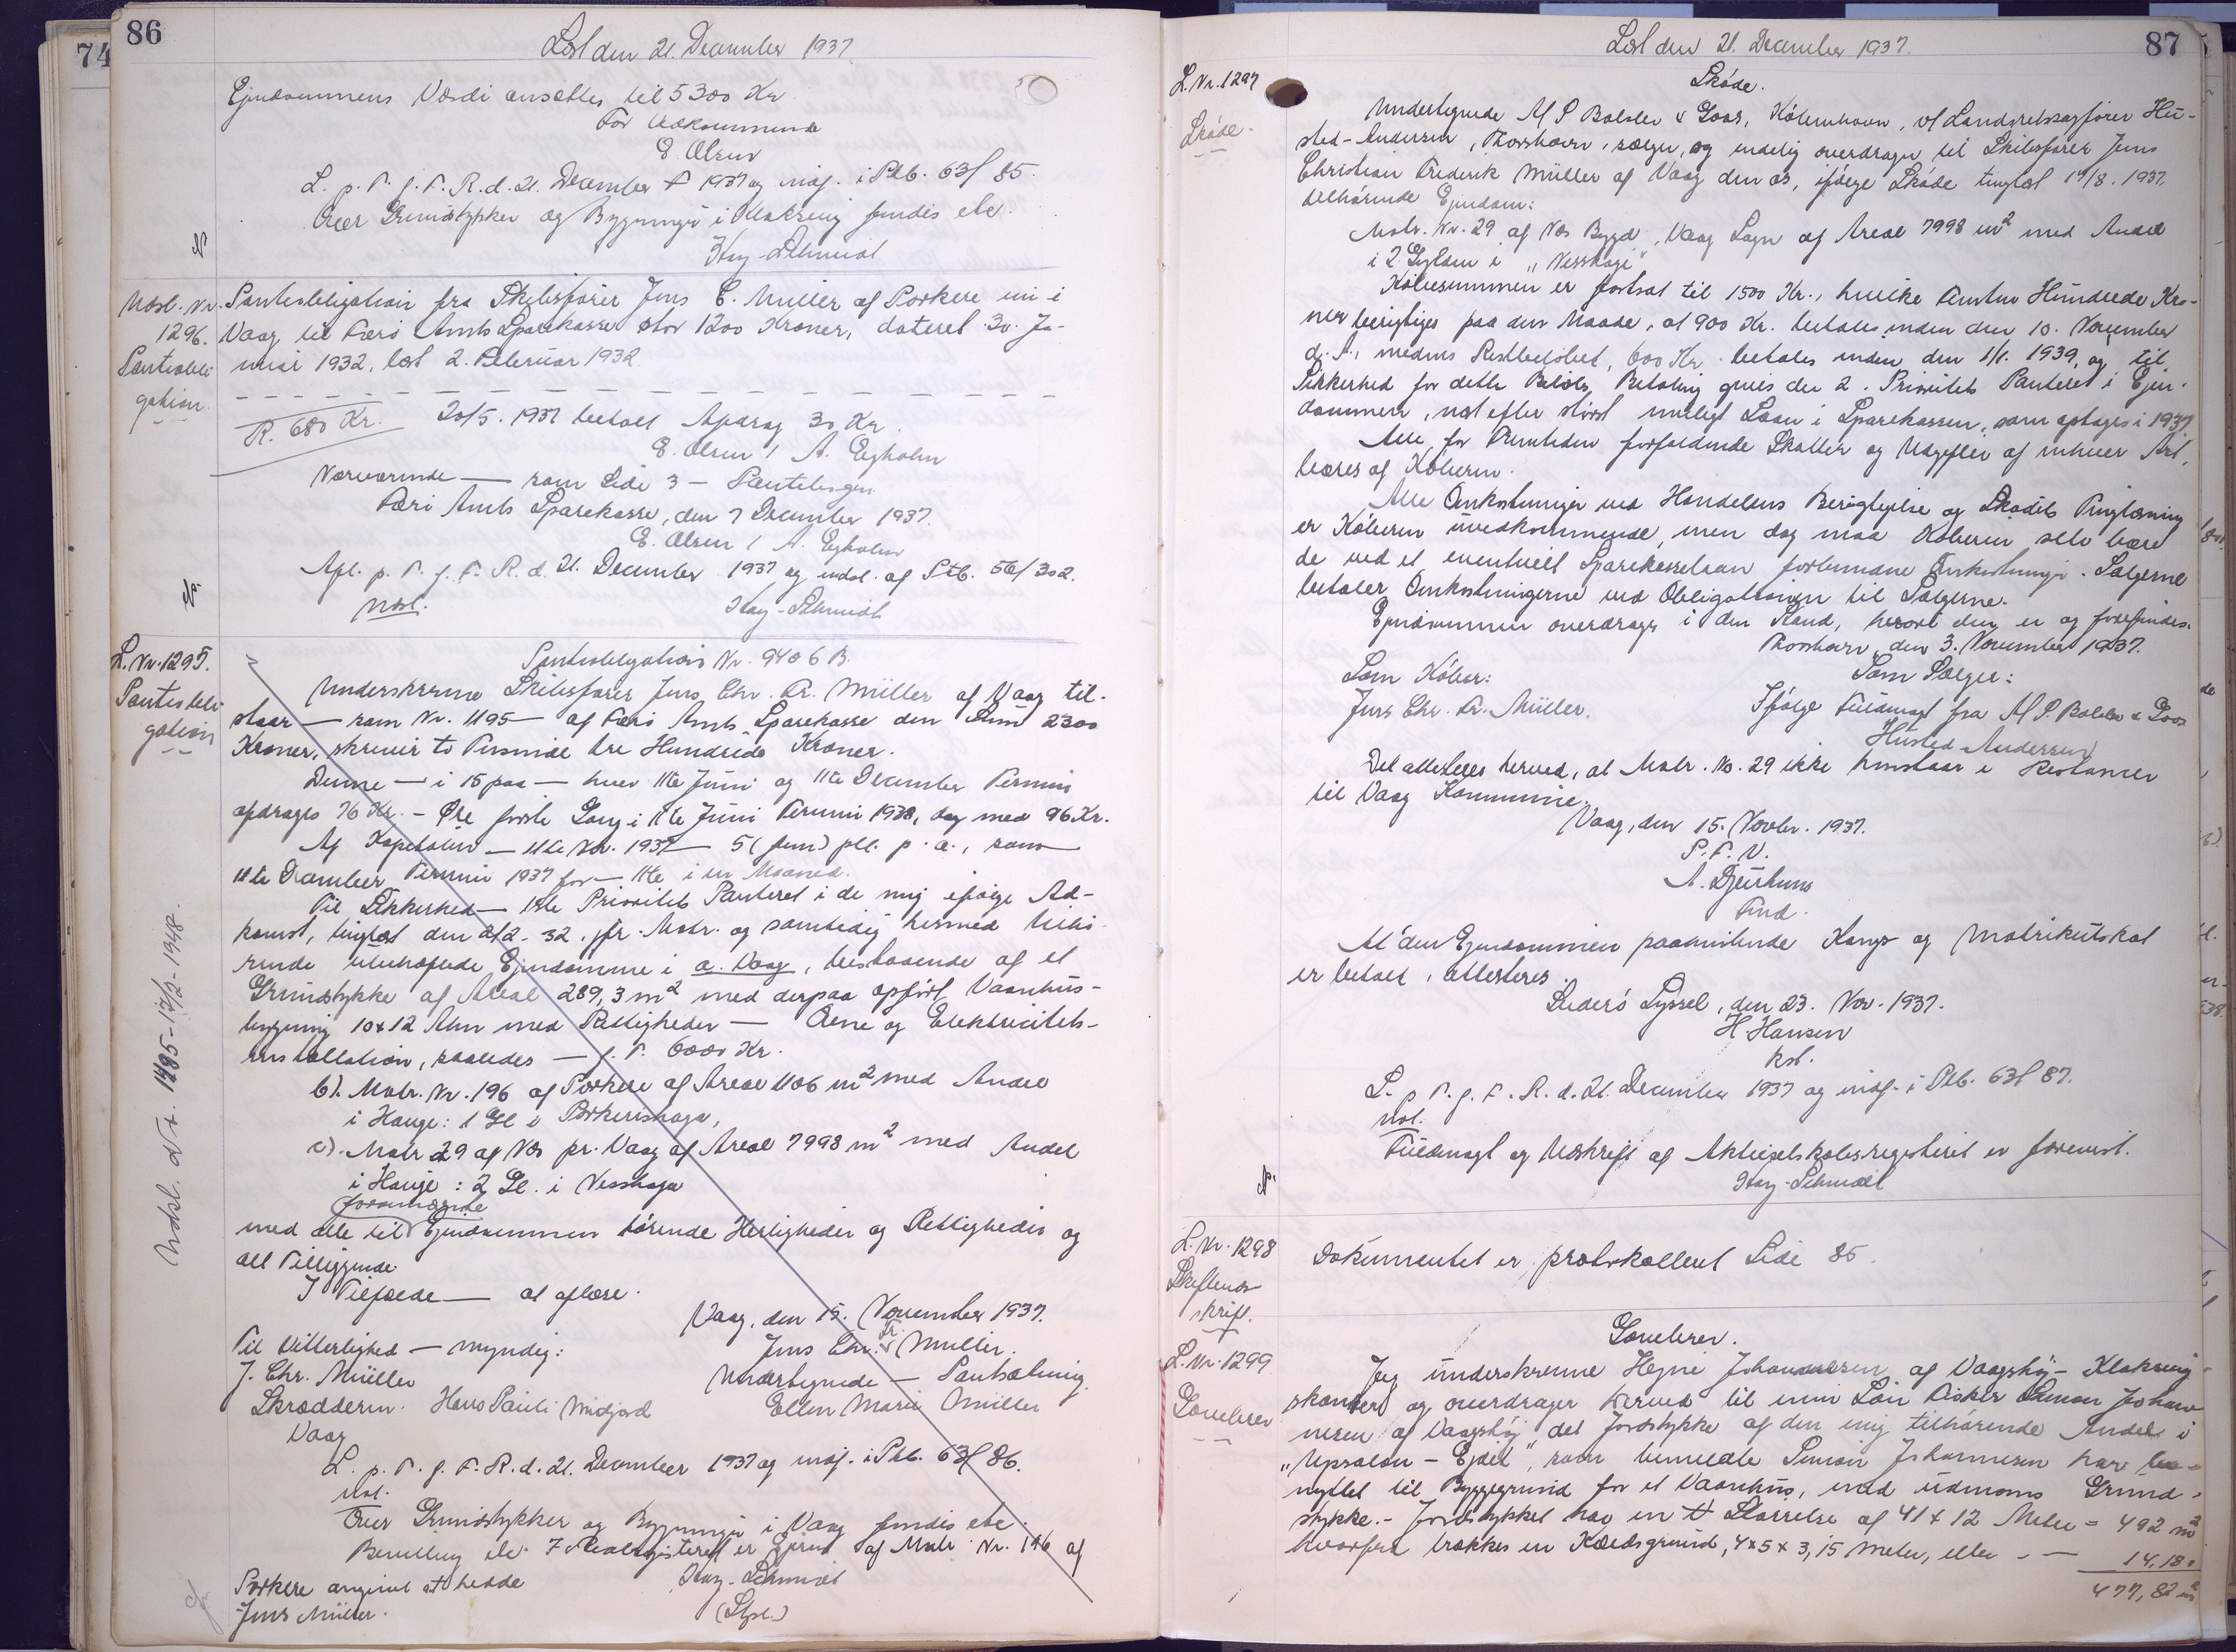 74
86
Læst den 21. December 1937.
Ejendommens Værdi ansættes til 5300 Kr
For Vedkommende
E. Olsen
L. p. T. f. F. R. d. 21. December 1937 og indf. i Ptb. 63f 85.
Over Grundstykker og Bygninger i Klaksvig findes etc.
Kay-Schmidt
Udsl. Nr. 1296.
Pantobligation
Pantobligation fra Skibsfører Jens C. Müller af Porkere nu i
Vaag til Færø Amts Sparekasse stor 1200 Kroner, dateret 30. Ja-
nuar 1932, læst 2. Februar 1932.
R. 680 Kr. 20/5. 1937 betalt Afdrag 30 Kr.
E. Olsen / A. Egholm
Nærværende — som Side 3 — Pantebogen
Færø Amts Sparekasse, den 7 December 1937.
E. Olsen / A. Egholm
Afl. p. T. f. F. R. d. 21. December 1937 og udsl. af Ptb. 56/302.
Udsl.
Kay-Schmidt
L. Nr. 1295.
Pantobligation
Pantobligation Nr. 9406 B.
Underskrevne Skibsfører Jens Chr. Fr. Müller af Vaag til-
staar — som Nr. 1195 — af Færø Amts Sparekasse den Sum 2300
Kroner, skriver to Tusinde tre Hundrede Kroner.
Denne — i 15 paa — hver 11te Juni og 11te December Termin
afdrages 76 Kr. - Øre første Gang i 11te Juni Termin 1938, dog med 96 Kr.
Af Kapitalen — 11te Nov. 1937 — 5 (fem) pCt. p. a., som
11te December Termin 1937 for — 11te i en Maaned.
Til Sikkerhed — 1ste Prioritets Panteret i de mig ifølge Ad-
komst, tinglæst den 2/2-32. jfr. Matr. og samtidig hermed tilhø-
rende ubehæftede Ejendomme i a. Vaag, bestaaende af et
Grundstykke af Areal 289,3 m² med derpaa opført Vaanhus-
bygning 10x12 Alen med Rettigheder — Ovne og Elektricitets-
installation, saaledes — f. T. 6000 Kr.
b). Matr. Nr. 196 af Porkere af Areal 1106 m² med Andel
i Hauge: 1 Gl i Porkerishaga,
c). Matr 29 af Næs pr. Vaag af Areal 7998 m² med Andel
i Hauge: 2 Gl. i Nesshaga
forannævnte
med alle til Ejendommen hørende Herligheder og Rettigheder og
alt Tilliggende
I Tilfælde — at aflæse.
Vaag, den 15. November 1937.
Til Vitterlighed — myndig:
Jens Chr. Fr. Müller.
J. Chr. Müller
Undertegnede — Pantsætning
Skrædderm. Hans Pauli Midjord
Ellen Marie Müller
Vaag
L. p. T. f. F. R. d. 21. December 1937 og indf. i Ptb. 63f 86.
Udl.
Over Grundstykker og Bygninger i Vaag findes etc.
Bevilling etc. I Realregisteret er Ejeren af Matr. Nr. 196 af
Porkere angivet at hedde
Jens Müller.
Kay-Schmidt
(Stpl.)
Udsl. d. N. 1485-17/12-1948.
87
Læst den 21. December 1937.
L. Nr. 1297
Skøde.
Skøde.
Undertegnede A/S Balslev & Goos, København, v/ Landsretssagfører Hu-
sted-Andersen, Thorshavn, sælger og endelig overdrager til Skibsfører Jens
Christian Frederik Müller af Vaag den os, ifølge Skøde tinglæst 17/8. 1937,
tilhørende Ejendom:
Matr. Nr. 29 af Næs Bygd, Vaag Sogn af Areal 7998 m² med Andel
i 2 Gylden i „Nesshage"
Købesummen er fastsat til 1500 Kr., hvilke Femten Hundrede Kro-
ner berigtiges paa den Maade, at 900 Kr. betales inden den 10. November
d. A., medens Restbeløbet, 600 Kr. betales inden den 1/1. 1939, og til
Sikkerhed for dette Beløbs Betaling gives der 2. Prioritets Panteret i Ejen-
dommen, næst efter størst muligt Laan i Sparekassen, som optages i 1937.
Alle for Fremtiden forfaldende Skatter og Udgifter af enhver Art,
bæres af Køberen.
Alle Omkostninger ved Handelens Berigtigelse og Skødets Tinglæsning
er Køberen uvedkommende, men dog maa Køberen selv bære
de ved et eventuelt Sparekasselaan forbundne Omkostninger. Sælgerne
betaler Omkostningerne ved Obligationen til Sælgerne.
Ejendommen overdrages i den Stand, hvori den er og forefindes.
Thorshavn, den 3. November 1937.
Som Køber:
Som Sælger:
Jens Chr. Fr. Müller.
Ifølge Fuldmagt fra A/S. Balslev & Goos
Husted-Andersen
Det attesteres herved, at Matr. No. 29 ikke henstaar i Restancer
til Vaag Kommune.
Vaag, den 15. Novbr. 1937.
P. F. V.
A. Djurhuus
Fmd.
At den Ejendommen paahvilende Konge og Matrikulskat
er betalt, attesteres.
Suderø Syssel, den 23. Nov. 1937.
H. Hansen
kst.
L. p. T. f. F. R. d. 21. December 1937 og indf. i Ptb. 63f 87.
Udl.
Fuldmagt og Udskrift af Aktieselskabsregisteret er forevist.
Kay-Schmidt
L. Nr. 1298
Skifteudskrift.
Dokumentet er protokolleret Side 85.
L. Nr. 1299
Gavebrev
Gavebrev.
Jeg underskrevne Hejne Johannesen af Vaagshøj - Klaksvig
skænker og overdrager herved til min Søn Fisker Simon Johan-
nesen af Vaagshøj det Jordstykke af den mig tilhørende Andel i
„Uppsalon - Ejdet", som bemeldte Simon Johannesen har be-
nyttet til Byggegrund for et Vaanhus, med udmoms Grund-
stykke. - Jordstykket har en Størrelse af 41 x 12 Meter = 492 m²
hvorfra trækkes en Kældsgrund, 4x5 x 3,15 Meter, eller - — 14,180
477,82 m²